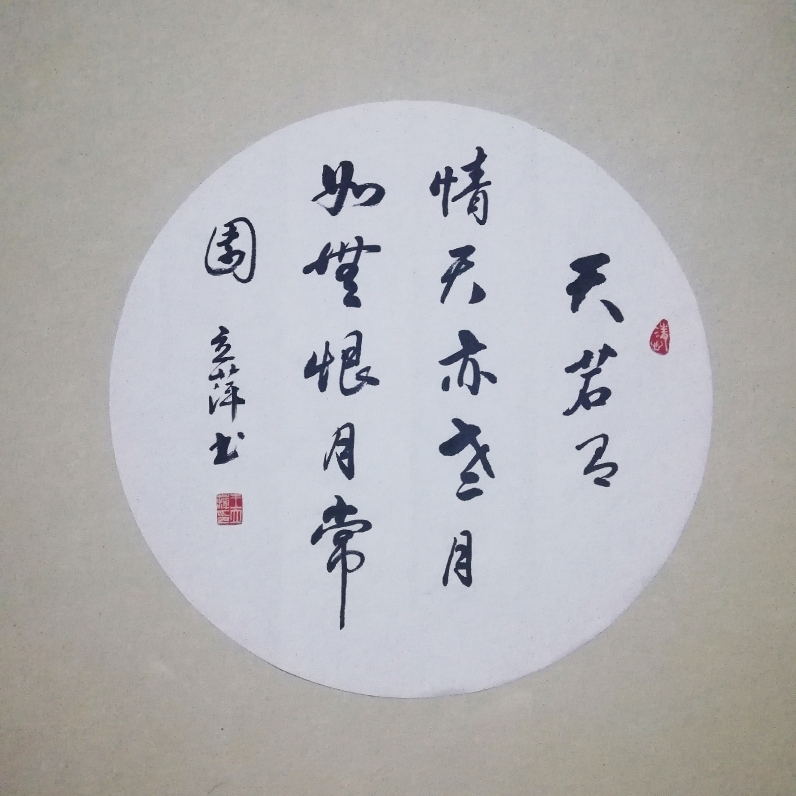 天若有
情天亦老月
如無恨月常
圓
立萍书